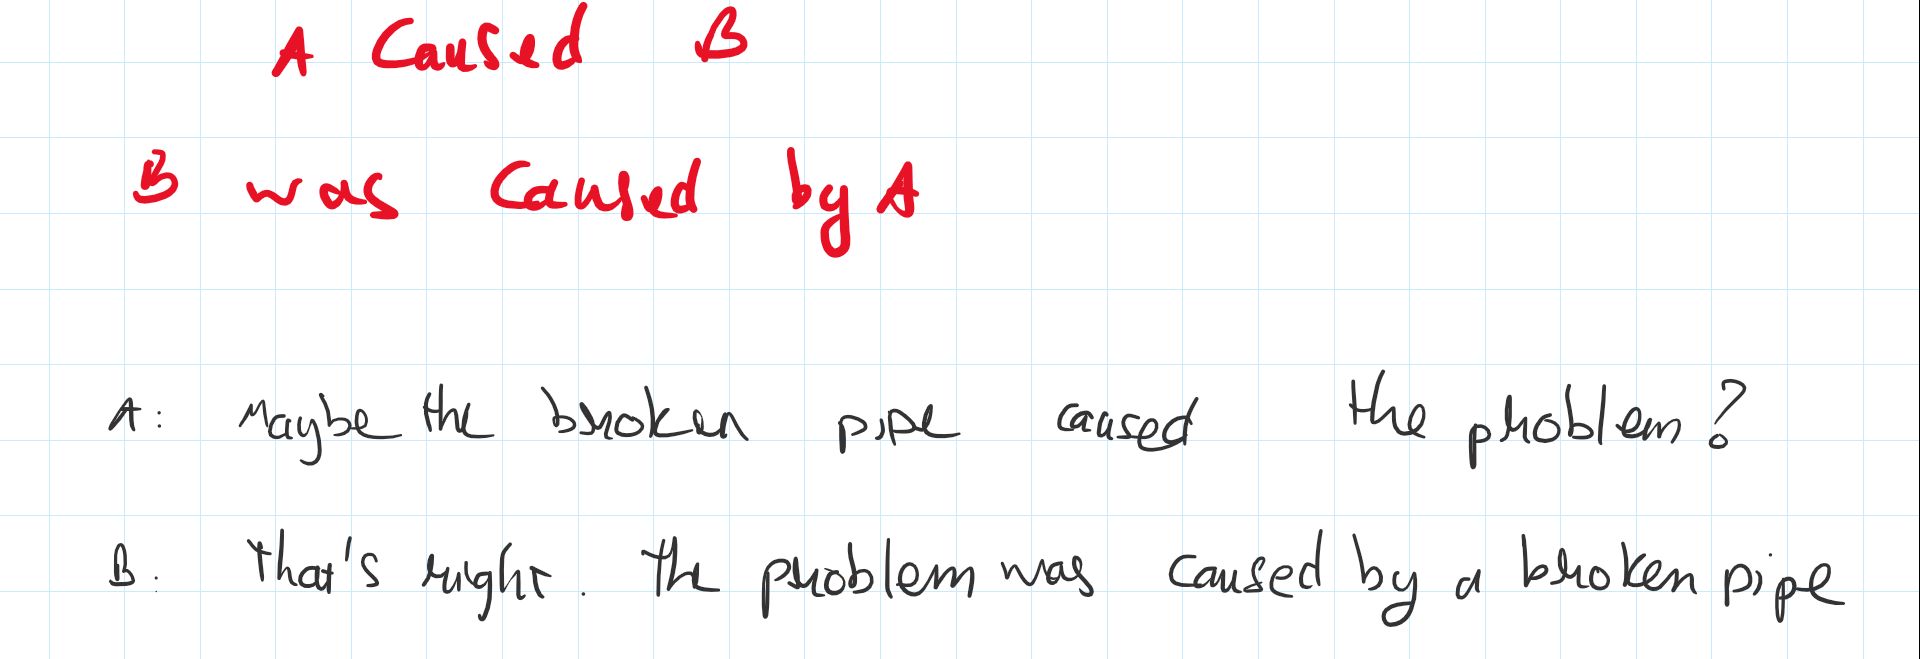 A Caused B
B was Caused by A
A: Maybe the broken pipe caused the problem?
B: that's right. The problem was caused by a broken pipe